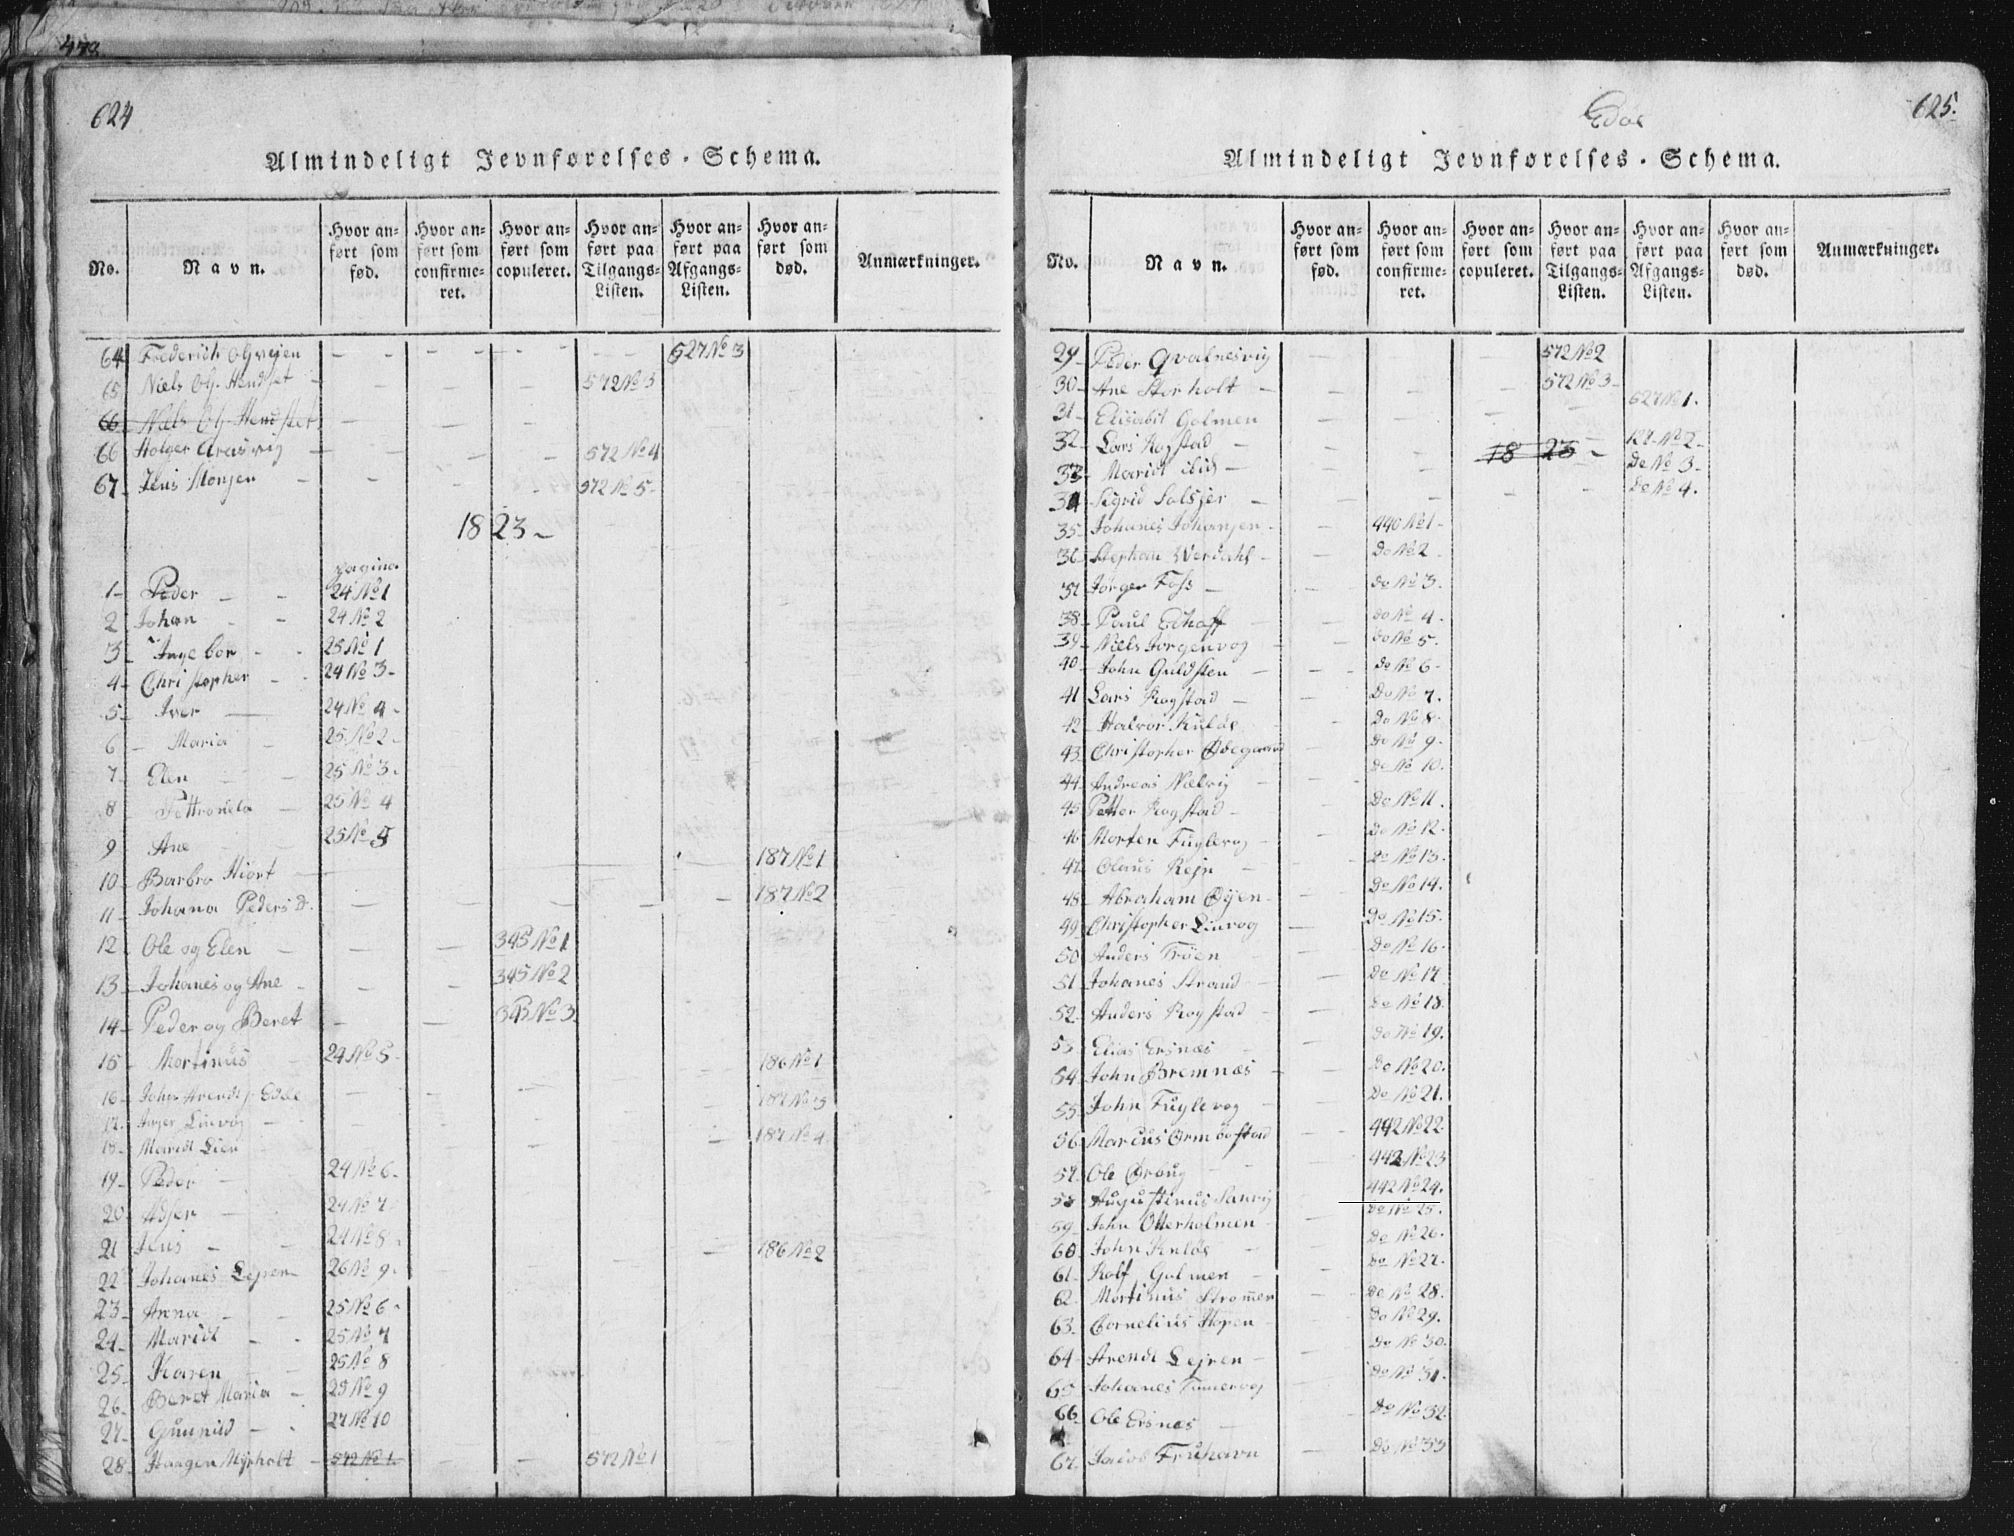 478
624
Almindeligt Jevnførelses-Schema.
No. Navn. Hvor anført som fød. Hvor anført som confirmeret. Hvor anført som copuleret. Hvor anført paa Tilgangs-Listen. Hvor anført paa Afgangs-Listen. Hvor anført som død. Anmærkninger.
64 Frederich 627 No 3
65 Niels Ol. 572 No 3
66 Niels Ol.
66 Holger 572 No 4
67 Jens Monsen 572 No 5
1823
pagina
1 Peder 24 No 1
2 Johan 24 No 2
3 Ingebor 25 No 1
4 Christopher 24 No 3
5 Iver 24 No 4
6 Maria 25 No 2
7 Elen 25 No 3
8 Pettronela 25 No 4
9 Ane 25 No 5
10 Barbro Hiort 187 No 1
11 Johana Peders D. 187 No 2
12 Ole og Elen 345 No 1
13 Johanes og Ane 345 No 2
14 Peder og Beret 345 No 3
15 Mortinus 24 No 5 186 No 1
16 John 187 No 3
17 Inger Linvog
18 Marit Lien 187 No 4
19 Peder 24 No 6
20 24 No 7
21 Jens 24 No 8 186 No 2
22 Johanes Lejren 26 No 9
23 Anna 25 No 6
24 Marit 25 No 7
25 Karen 25 No 8
26 Beret Maria 25 No 9
27 Gunnild 27 No 10
28 Haagen Myrholt 572 No 1 572 No 1
Edøe
625.
Almindeligt Jevnførelses-Schema.
No. Navn. Hvor anført som fød. Hvor anført som confirmeret. Hvor anført som copuleret. Hvor anført paa Tilgangs-Listen. Hvor anført paa Afgangs-Listen. Hvor anført som død. Anmærkninger.
29 Peder Qvalnesvig 572 No 2
30 Ane Storholt 572 No 3
31 Elisabet Golmen 627 No 1.
32 Lars Rogstad 18 23 No 2
33 Marit Do No 3
34 Sigrid Solsjer Do No 4.
35 Johanes Johansen 440 No 1
36 Stephan Werdahl Do No 2
37 Jørgen Foss Do No 3.
38 Paul Edhaff Do No 4.
39 Niels Jørgenvog Do No 5.
40 John Guldsten Do No 6
41 Lars Rogstad Do No 7.
42 Halvor Kuløe Do No 8
43 Christopher Ødegaard Do No 9
44 Andreas Nælvig Do No 10.
45 Petter Rogstad Do No 11.
46 Morten Fuglevog Do No 12.
47 Olaus Rejn Do No 13.
48 Abraham Øyen Do No 14.
49 Christopher Linvog Do No 15.
50 Anders Trøen Do No 16.
51 Johanes Strand Do No 17
52 Anders Rogstad Do No 18.
53 Elias Ersnæs Do No 19.
54 John Bremnæs Do No 20.
55 John Fuglevog Do No 21.
56 Marcus Ormbostad 442 No 22
57 Ole Ørbug 442 No 23
58 Augustinus Sanvig 442 No 24.
59 John Otterholmen Do No 25.
60 John Kuløe Do No 26.
61 Rolf Golmen Do No 27.
62 Mortinus Strømmen Do No 28.
63 Cornelius Hopen Do No 29.
64 Arendt Lejren Do No 30.
65 Johanes Tømervog Do No 31.
66 Ole Ersnes Do No 32.
67 Jacob Fruhavn Do No 33